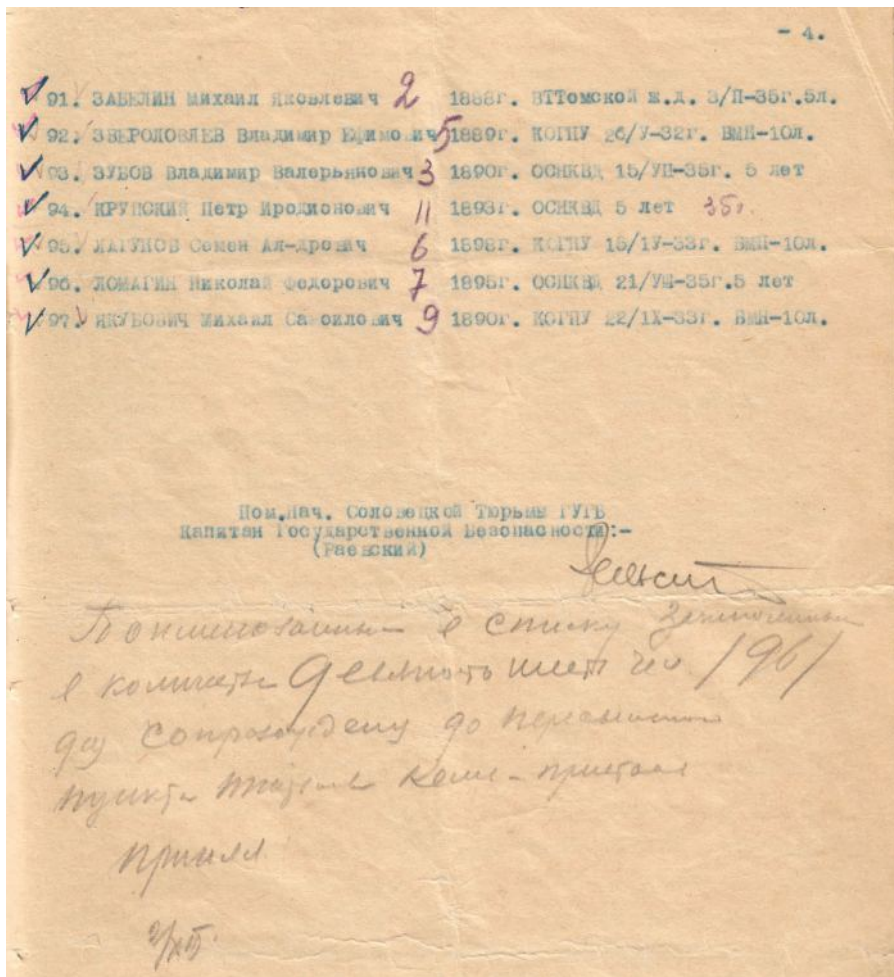 - 4.
91. ЗАБЕЛИН Михаил Яковлевич 2 1888г. ВТТомской ж.д. 3/П-35г.5л.
92. ЗВЕРОЛОВЛЕВ Владимир Ефимович 5 1889г. КОГПУ 26/У-32г. ВМН-10л.
93. ЗУБОВ Владимир Валерьянович 3 1890г. ОСНКВД 15/УП-35г. 5 лет
94. КРУПСКИЙ Петр Иродионович 11 1893г. ОСНКВД 5 лет 35г.
95. ЛАГУНОВ Семен Ал-дрович 6 1898г. КОГПУ 15/1У-33г. ВМН-10л.
96. ЛОМАГИН Николай Федорович 7 1895г. ОСНКВД 21/УШ-35г.5 лет
97. ЯКУБОВИЧ Михаил Самоилович 9 1890г. КОГПУ 22/1Х-33г. ВМН-10л.
Пом.Нач. Соловецкой Тюрьмы ГУГБ
Капитан Государственной Безопасности:-
(Раевский)
в списку
в количестве Девяносто шесть чел /96/
для до
пункта Кемь-пристань
принял